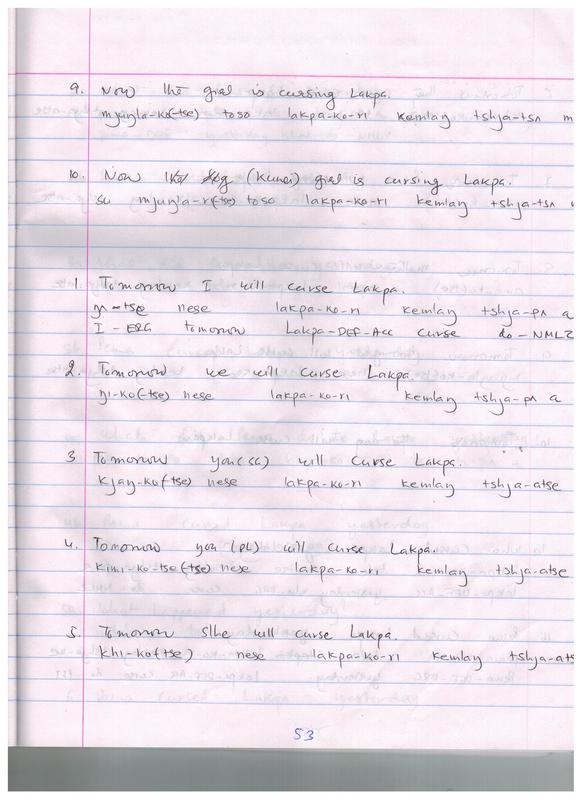 9. Now the girl is cursing Lakpa.
mjuŋla-ko(-tse) toso lakpa-ko-ri kemlaŋ tshja-tsʌ m
10. Now (Kunai) girl is cursing Lakpa.
su mjuŋla-ri(-tse) toso lakpa-ko-ri kemlaŋ tshja-tsʌ
1. Tomorrow I will curse Lakpa.
nese lakpa-ko-ri kemlaŋ tshja-pʌ a
I-ERG tomorrow Lakpa-DEF-ACC curse do-NMLZ
2. Tomorrow we will curse Lakpa.
ŋi-ko(-tse) nese lakpa-ko-ri kemlaŋ tshja-pʌ a
3 Tomorrow you(SG) will curse Lakpa.
kjaŋ-ko(-tse) nese lakpa-ko-ri kemlaŋ tshja-atse
4. Tomorrow you (PL) will curse Lakpa.
kimi-ko-tse(-tse) nese lakpa-ko-ri kemlaŋ tshja-atse
5. Tomorrow s/he will curse Lakpa.
khi-ko(tse) nese lakpa-ko-ri kemlaŋ tshja-ats
53